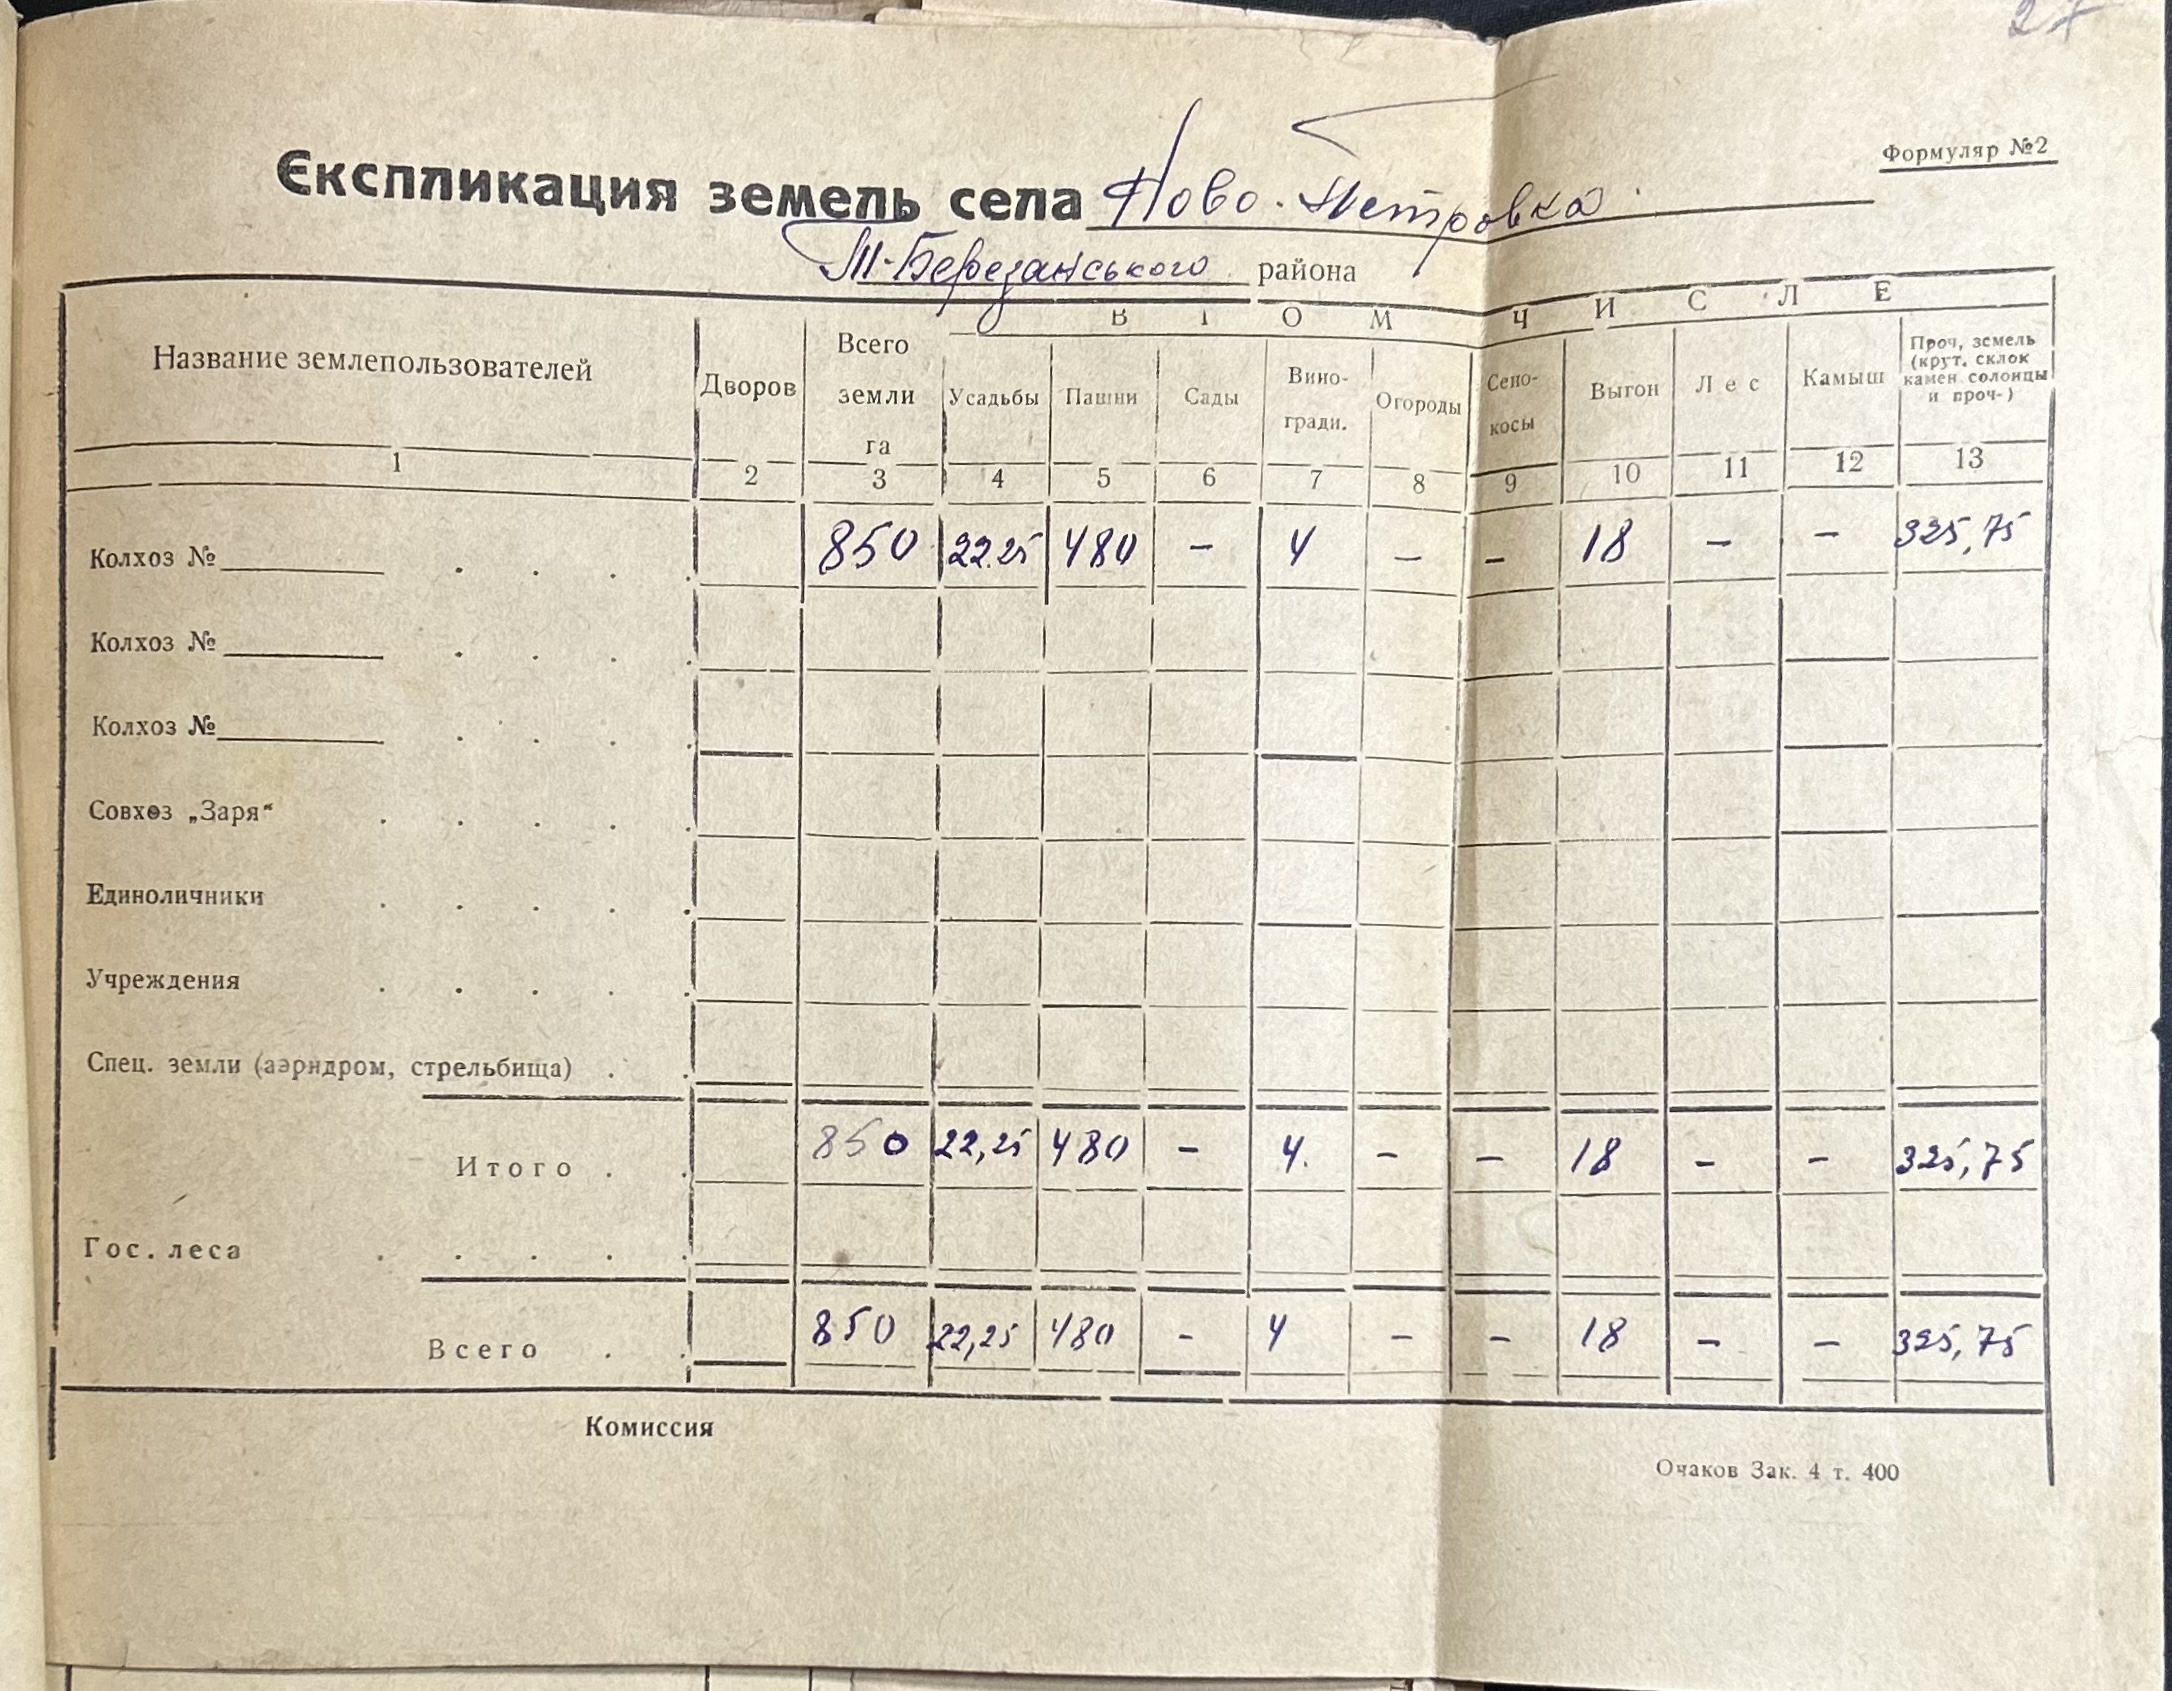 27
Формуляр №2
Експликация земель села Ново-Петровка
Т-Березанського района
В ТОМ ЧИСЛЕ
Название землепользователей Дворов Всего земли га Усадьбы Пашни Сады Вино-гради. Огороды Сено-косы Выгон Лес Камыш Проч, земель (крут. склок камен. солонцы и проч-)
1 2 3 4 5 6 7 8 9 10 11 12 13
Колхоз № 850 22.25 480 - 4 - - 18 - - 325,75
Колхоз №
Колхоз №
Совхоз „Заря“
Единоличники
Учреждения
Спец. земли (аэрндром, стрельбища)
Итого 850 22,25 480 - 4. - - 18 - - 325,75
Гос. леса
Всего 850 22,25 480 - 4 - - 18 - - 325,75
Комиссия
Очаков Зак. 4 т. 400